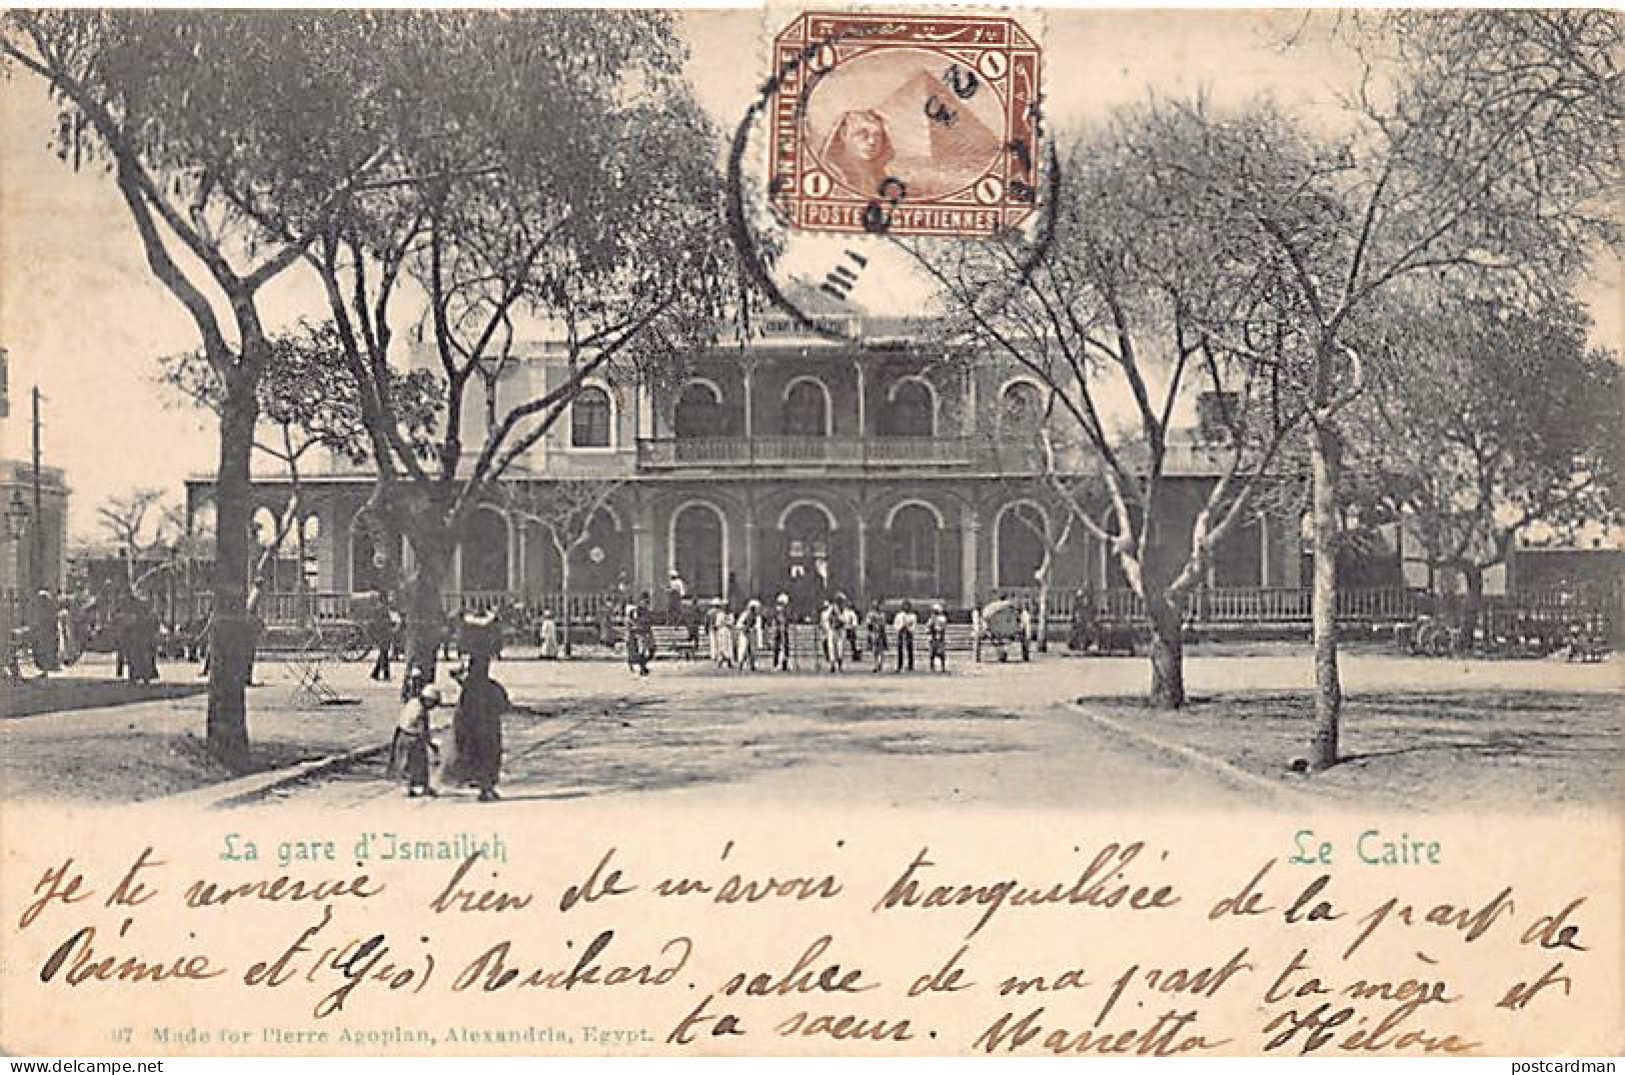 بوستة مصرية
UN MILLIEME
1
١
1
١
POSTES EGYPTIENNES
VIII 03
La gare d'Ismailieh
Le Caire
Je te remercie bien de m'avoir tranquilisée de la part de
Rémie et (Gio) Richard. salue de ma part ta mère et
ta soeur. Marietta Hélou
97 Made for Pierre Agopian, Alexandria, Egypt.
postcardman